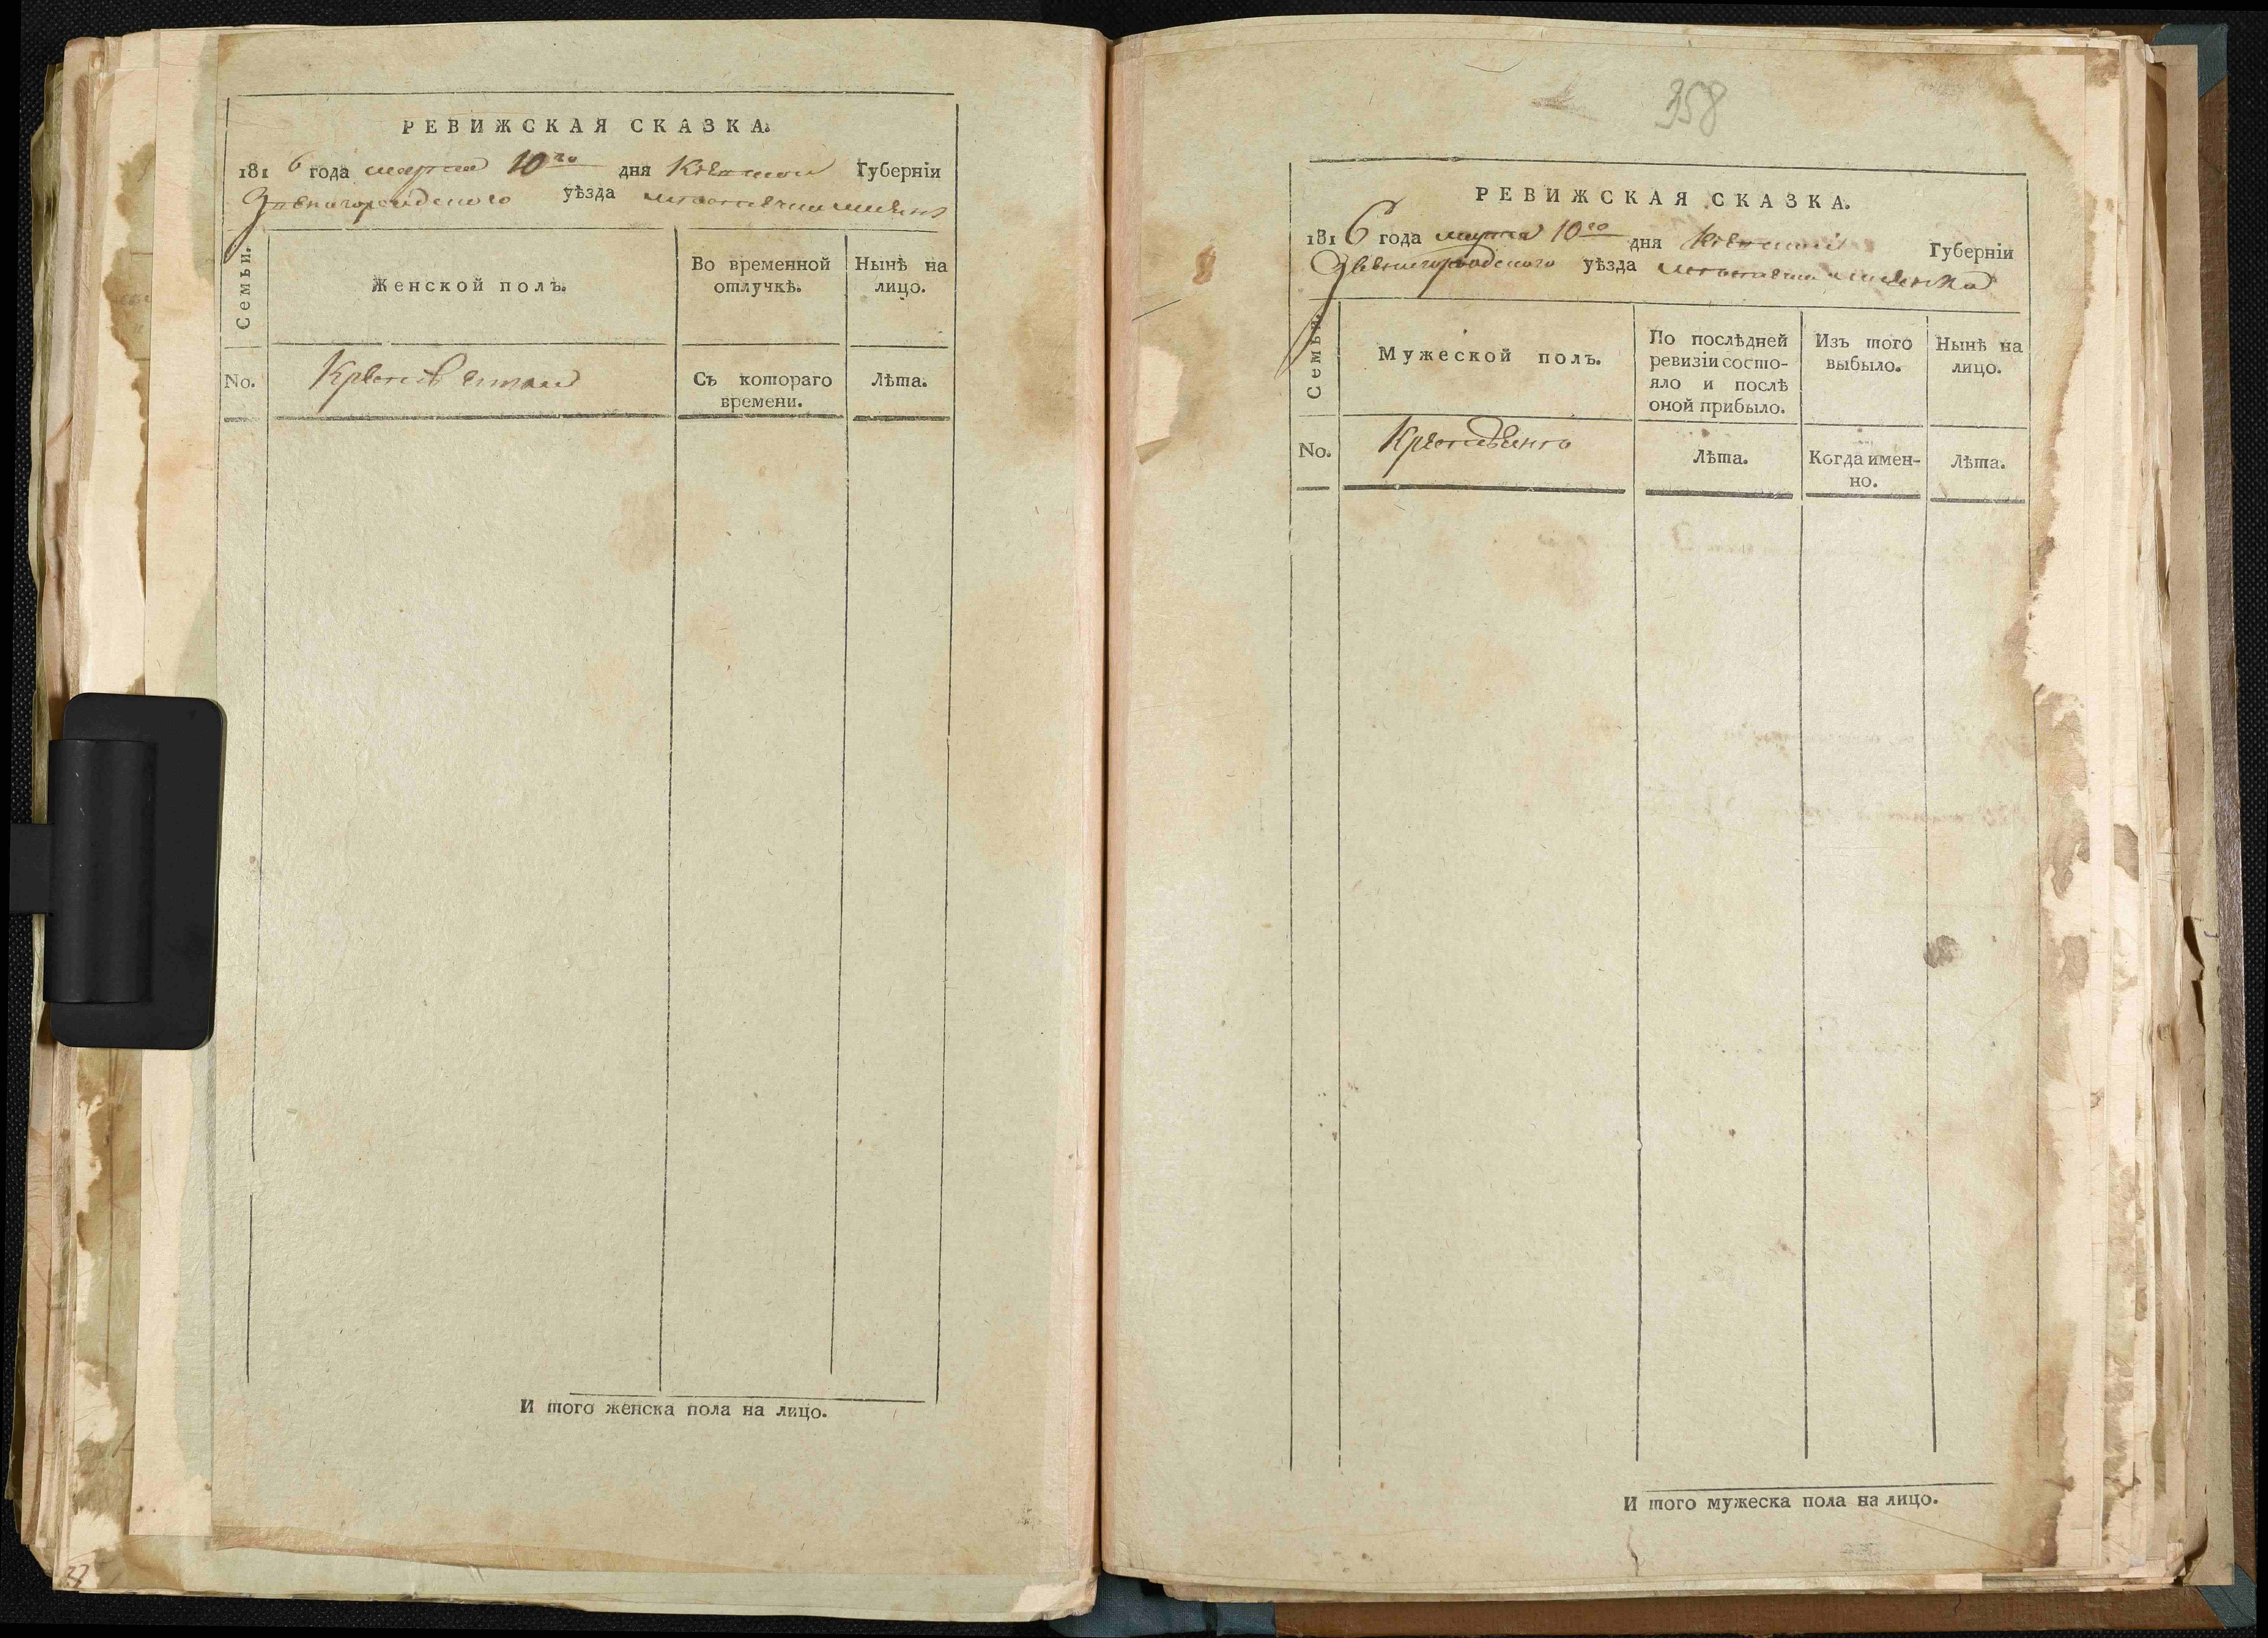 РЕВИЖСКАЯ СКАЗКА.
1816 года марта 10го дня Киевской Губерніи
Звенигородского уѣзда
Семьи. Женской полъ. Во временной отлучкѣ. Нынѣ на лицо.
No. Съ котораго времени. Лѣта.
И того женска пола на лицо.
358
РЕВИЖСКАЯ СКАЗКА.
1816 года марта 10го дня Киевской Губерніи
Звенигородского уѣзда
Семьи. Мужеской полъ. По послѣдней ревизіи состояло и послѣ оной прибыло. Изъ того выбыло. Нынѣ на лицо.
No. Лѣта. Когда именно. Лѣта.
И того мужеска пола на лицо.